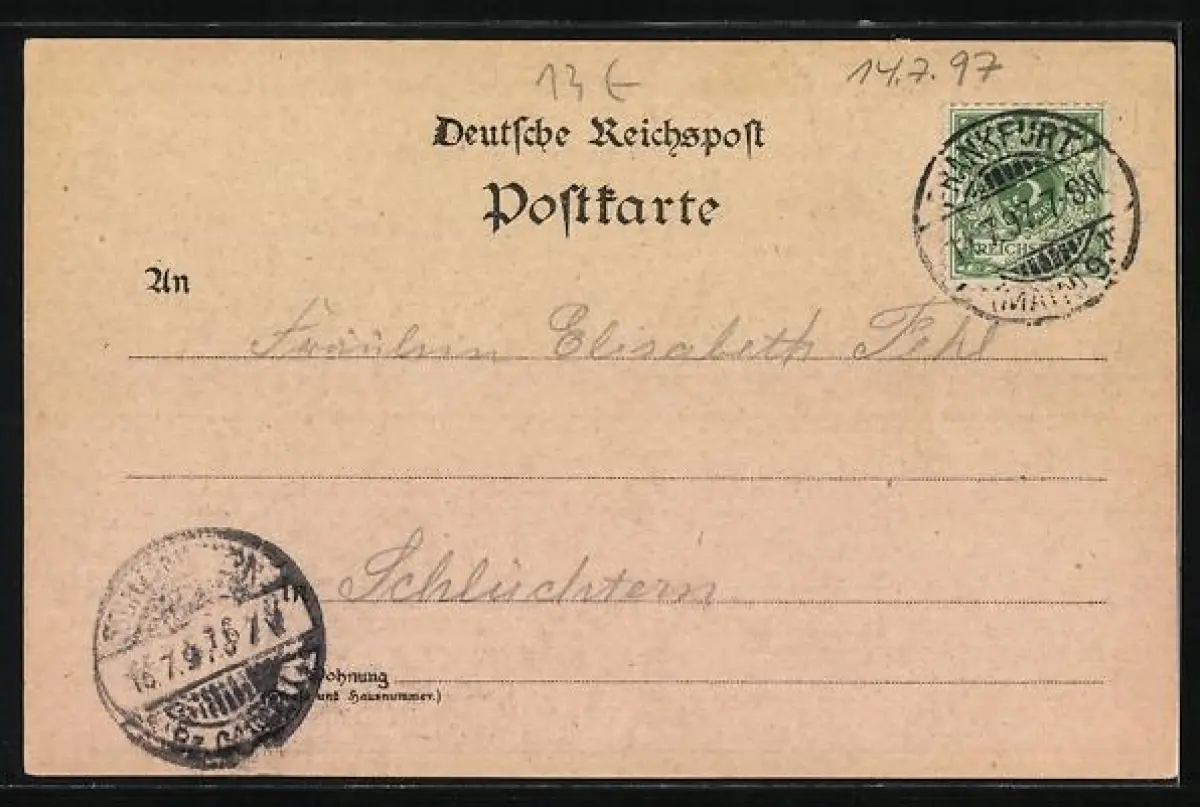 13 €
14.7.97
Deutsche Reichspost
Postkarte
FRANKFURT
7.97. 7-8N.
REICHSPOST
(MAIN) 9.
An
Fräulein Elisabeth Fehl
Schlüchtern
in
15.7.97
Wohnung
(Straße und Hausnummer.)